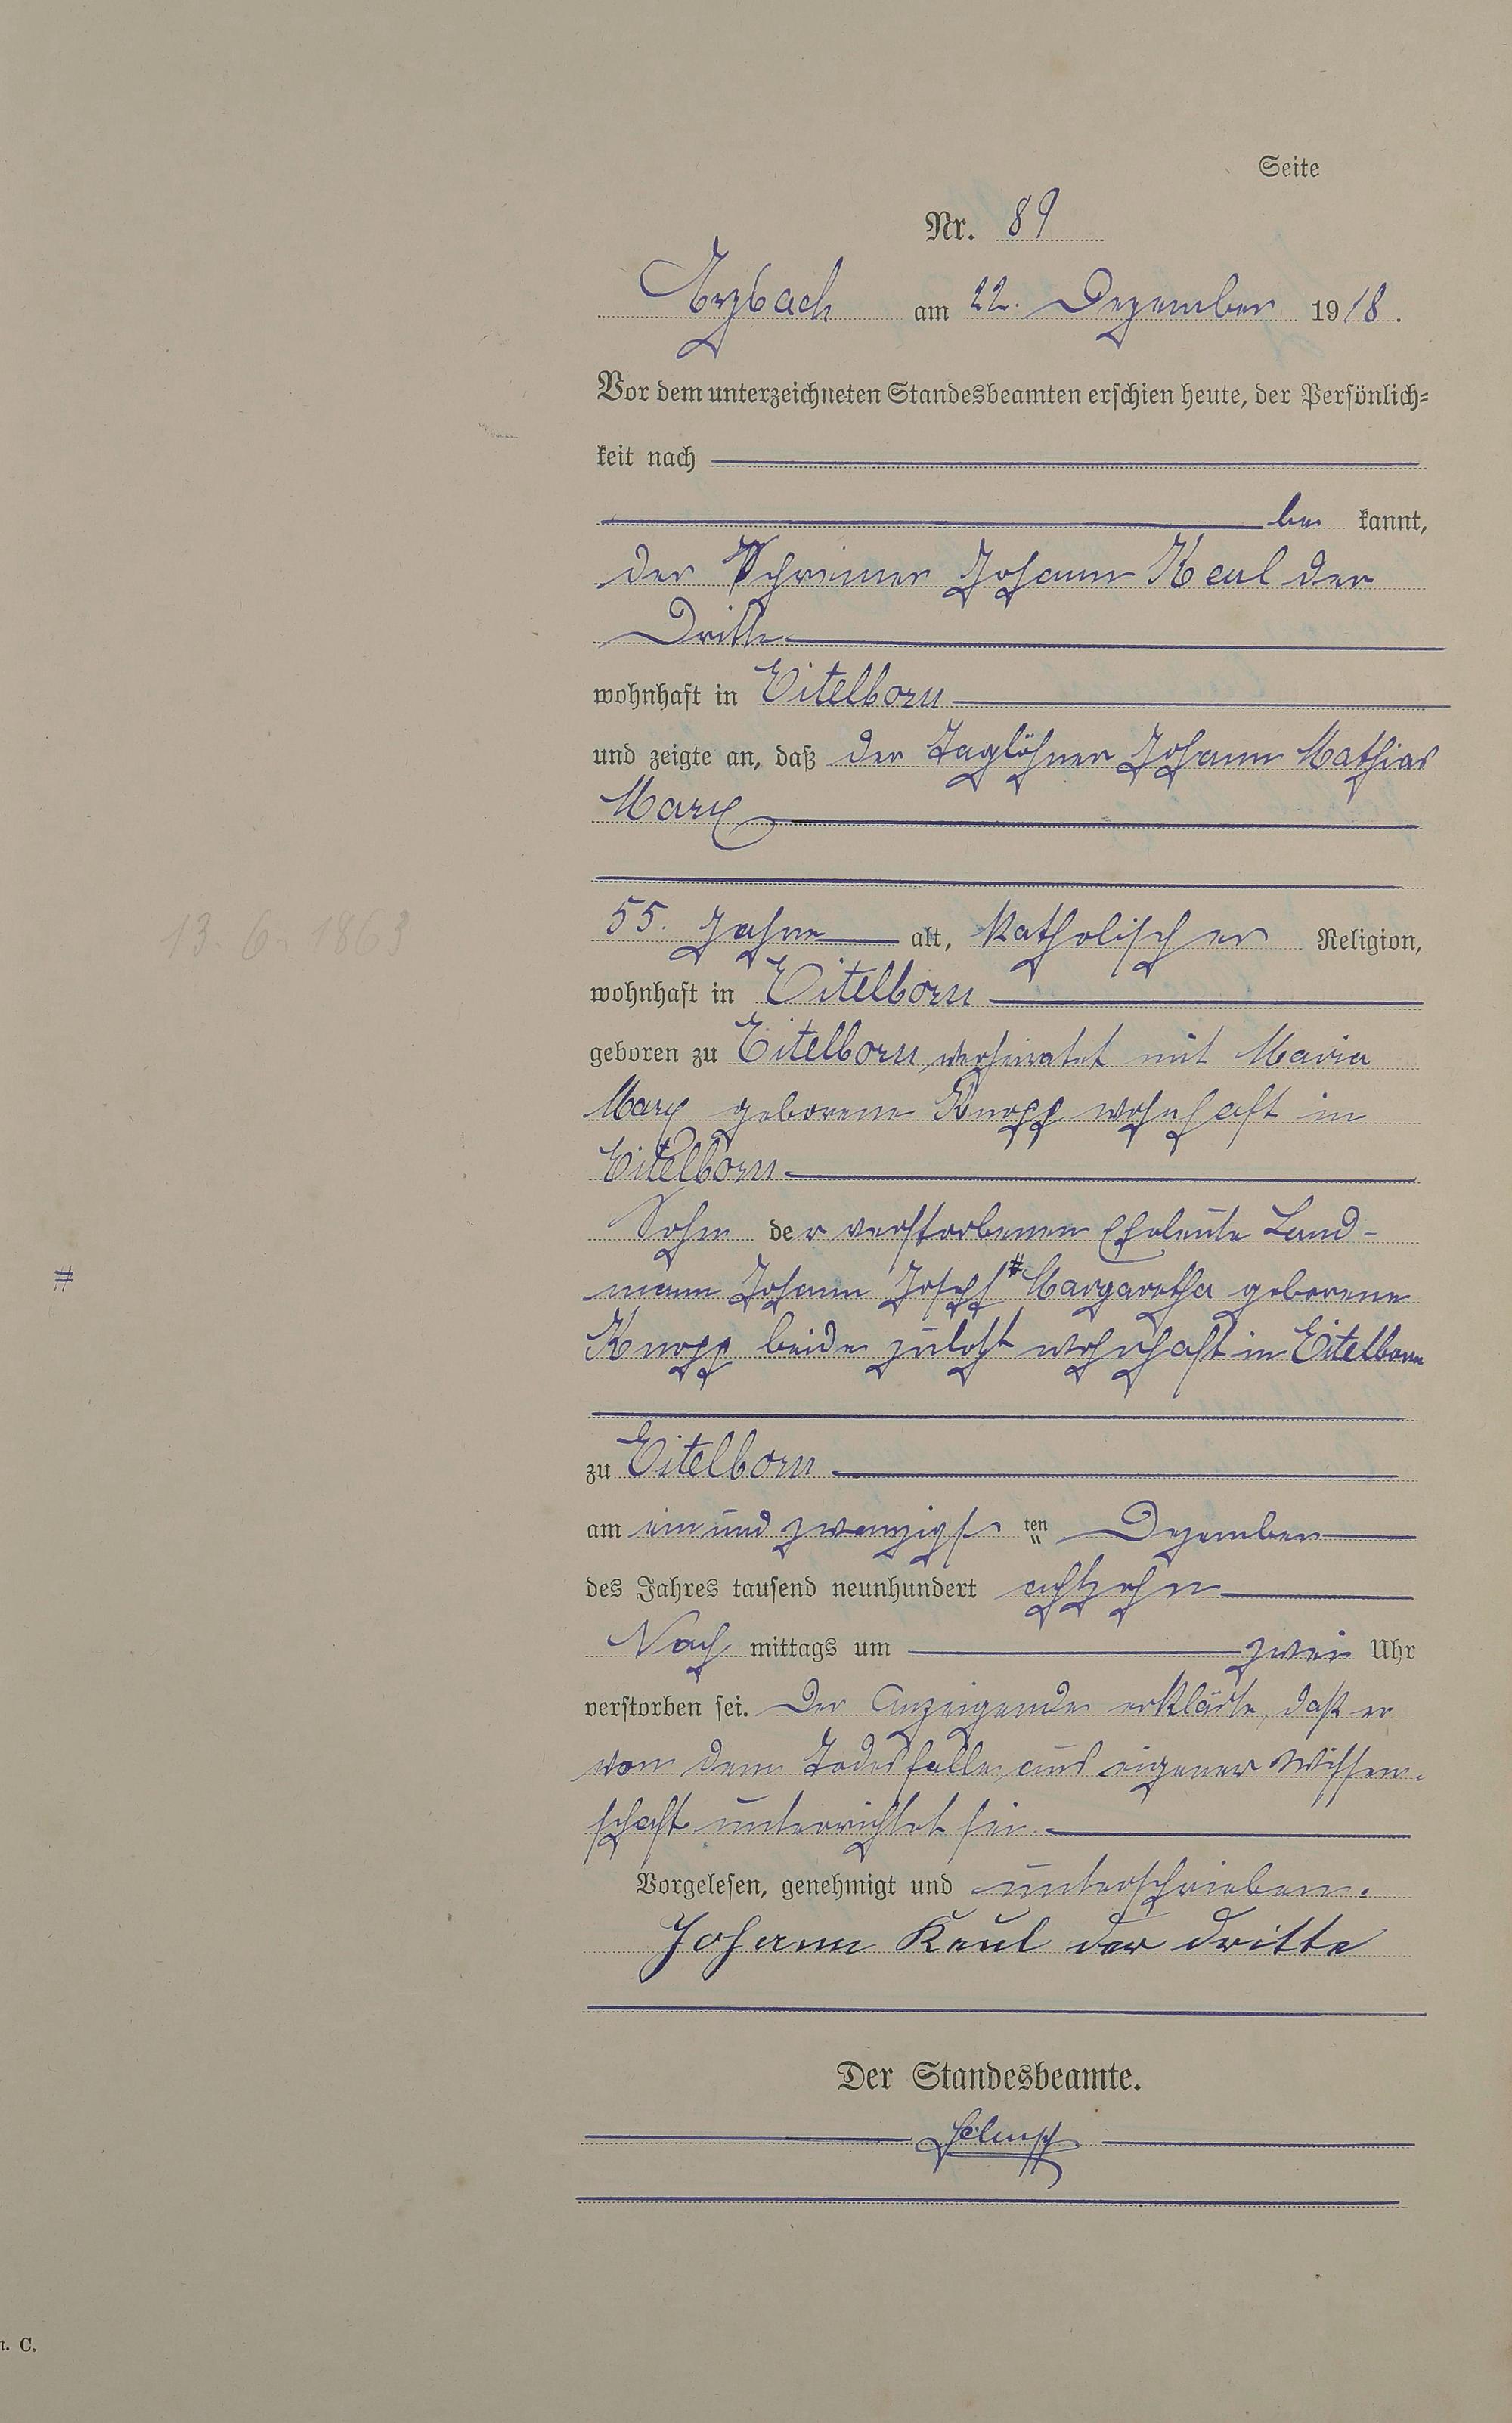 Seite
Nr. 89
Arzbach am 22. Dezember 1918.
Vor dem unterzeichneten Standesbeamten erschien heute, der Persönlich=
keit nach
be kannt,
der Schreiner Johann Keul der
Dritte
wohnhaft in Eitelborn
und zeigte an, daß der Taglöhner Johann Mathias
Marx
13. 6. 1863
55. Jahre alt, katholischer Religion,
wohnhaft in Eitelborn
geboren zu Eitelborn verheiratet mit Maria
Marx geborene Knopp wohnhaft in
Eitelborn
Sohn der verstorbenen Eheleute Land-
# mann Johann Joseph # Margaretha geborene
Knopp beide zuletzt wohnhaft in Eitelborn
zu Eitelborn
am ein und zwanzigsten ten Dezember
des Jahres tausend neunhundert achtzehn
Nach mittags um zwei Uhr
verstorben sei. Der Anzeigende erklärte, daß er
von dem Todesfalle aus eigener Wissen-
schaft unterrichtet sei.
Vorgelesen, genehmigt und unterschrieben.
Johann Keul der dritte
Der Standesbeamte.
n. C.